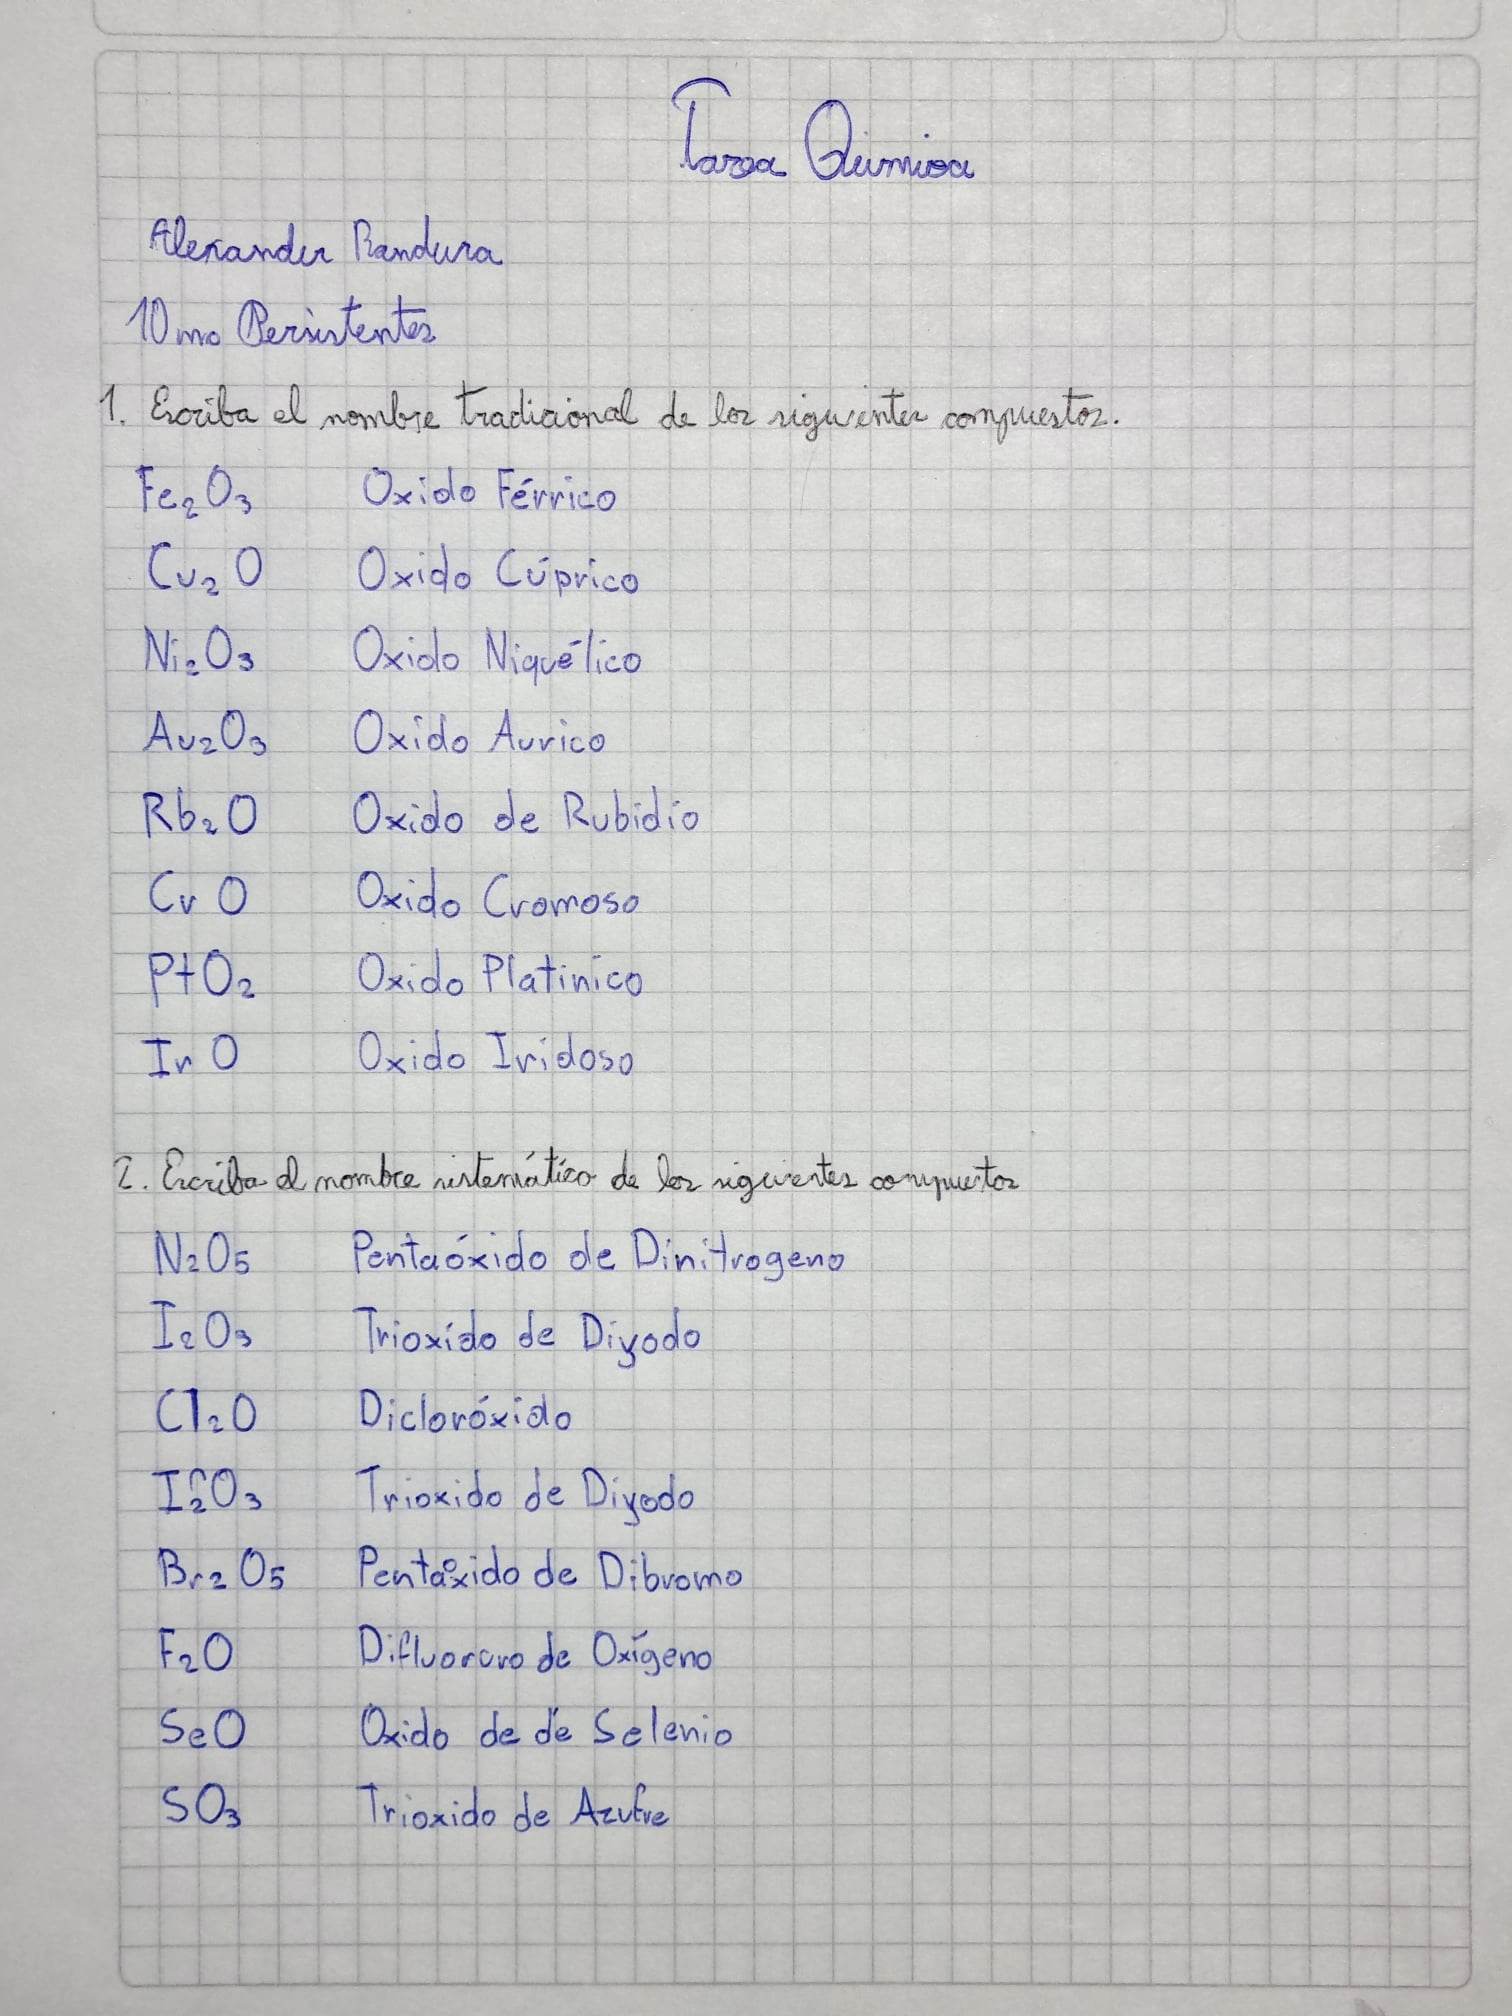 Tarea Quimica
Alexander Bandura
10mo Persistentes
1. Escriba el nombre tradicional de los siguientes compuestos.
Fe₂O₃ Oxido Férrico
Cu₂O Oxido Cúprico
Ni₂O₃ Oxido Niquélico
Au₂O₃ Oxido Aurico
Rb₂O Oxido de Rubidio
CrO Oxido Cromoso
PtO₂ Oxido Platinico
IrO Oxido Iridoso
2. Escriba el nombre sistemático de los siguientes compuestos
N₂O₅ Pentaóxido de Dinitrogeno
I₂O₃ Trioxido de Diyodo
Cl₂O Dicloróxido
I₂O₃ Trioxido de Diyodo
Br₂O₅ Pentaoxido de Dibromo
F₂O Difluoruro de Oxígeno
SeO Oxido de de Selenio
SO₃ Trioxido de Azufre